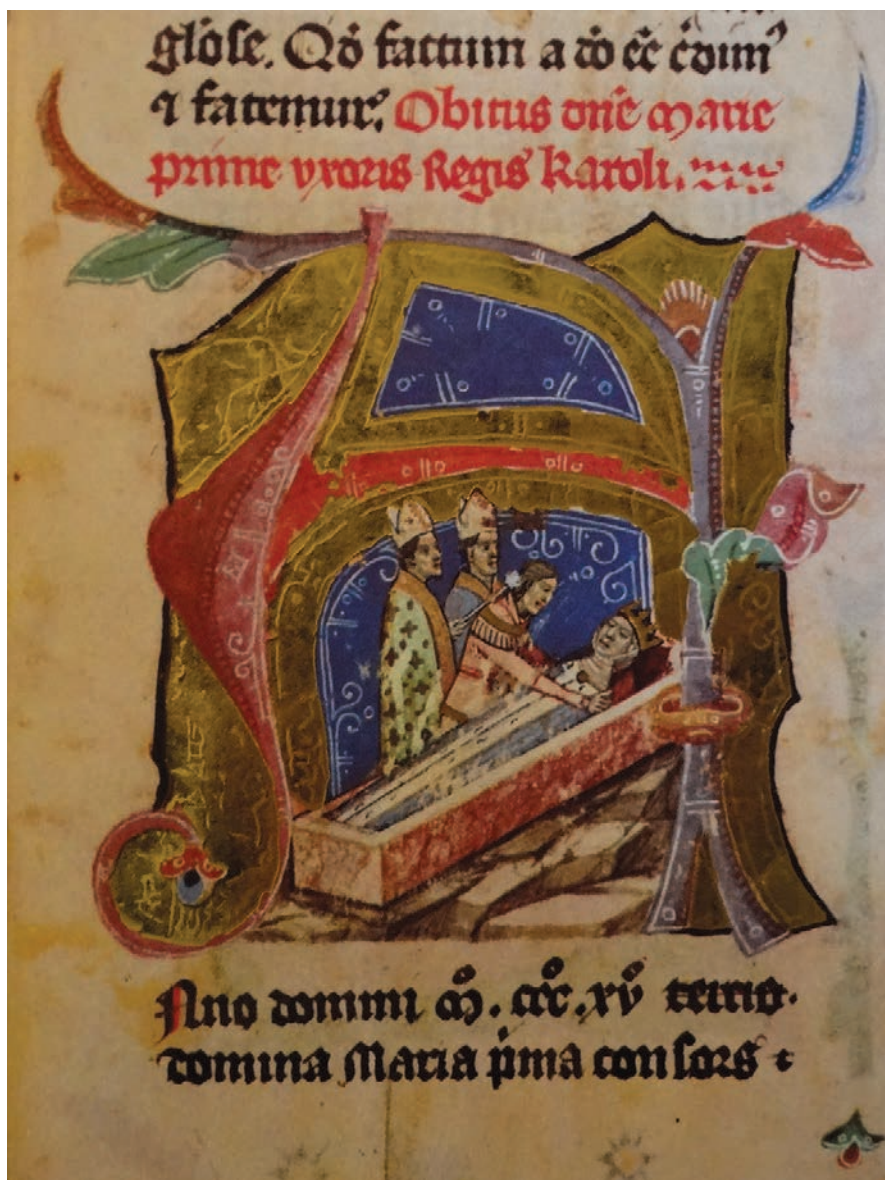 glose. Qd̄ factum a do eē c̄dim⁹
⁊ fatemur. Obitus dn̄e Marie
prime vxoris Regis Karoli.
Ano domini m̊. ccc̊. xv̊ tercio.
domina Maria pͥma consors ⁊